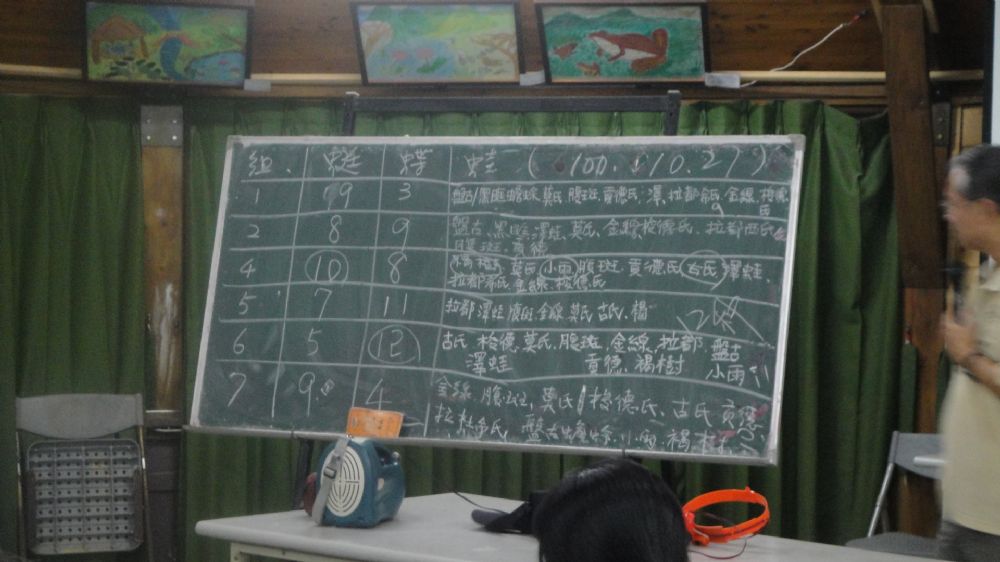 組 蜓 蝶 蛙 (100.10.27)
1 19 3 盤古 黑眶 莫氏 腹斑 貢德氏 澤 拉都希氏 金線 梭德氏
9
2 8 9 盤古 黑眶 澤蛙 莫氏 金線 梭德氏 拉都西氏
腹斑 貢德
4 10 8 莫氏 小雨 腹斑 貢德氏 古氏 澤蛙
拉都希氏 金線 梭德氏
5 7 11 拉都 澤蛙 腹斑 金線 莫氏 古氏 褐
6 5 12 古氏 梭德 莫氏 腹斑 金線 拉都 盤古
澤蛙 貢德 褐樹 小雨
7 9 4 金線 腹斑 莫氏 梭德氏 古氏 貢德
拉杜希氏 盤古蟾蜍 小雨 褐樹